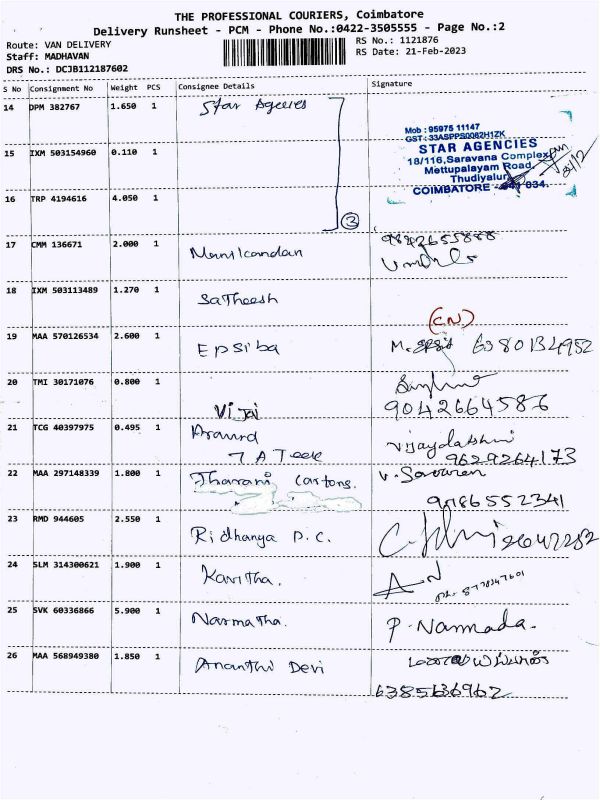 THE PROFESSIONAL COURIERS, Coimbatore
Delivery Runsheet - PCM - Phone No.:0422-3505555 - Page No.:2
Route: VAN DELIVERY
RS No.: 1121876
Staff: MADHAVAN
RS Date: 21-Feb-2023
DRS No.: DCJB112187602
S No Consignment No Weight PCS Consignee Details Signature
14 DPM 382767 1.650 1 Star Agecies
Mob : 95975 11147
GST : 33ASPPS0082H1ZK
15 IXM 503154960 0.110 1
STAR AGENCIES
18/116,Saravana Complex,
Mettupalayam Road,
Thudiyalur,
COIMBATORE - 641 034.
21/2
16 TRP 4194616 4.050 1
3
17 CMM 136671 2.000 1 Manikandan
9842655888
18 IXM 503113489 1.270 1 Satheesh
(CN)
19 MAA 570126534 2.600 1 Epsiba M. 6380134952
20 TMI 30171076 0.800 1
9042664586
Vijai
21 TCG 40397975 0.495 1 Aravind Vijayalakshmi
9629264173
22 MAA 297148339 1.800 1 Tharani Cartons.
9486552341
23 RMD 944605 2.550 1 Ridhanya P.C.
24 SLM 314300621 1.900 1 Kavitha.
25 SVK 60336866 5.900 1 Narmatha. P. Narmada.
26 MAA 568949380 1.850 1 Ananthi Devi
6385636962